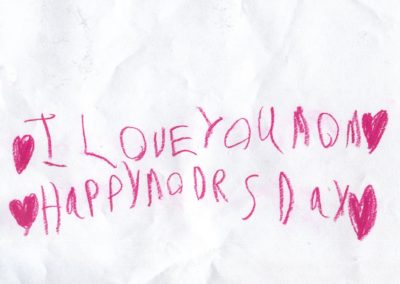 I LOVE YOU MOM
HAPPY MODRS DAY